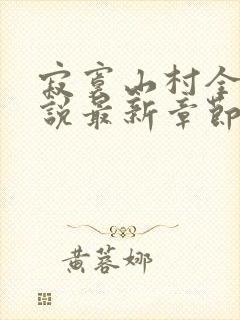 寂寞山村全
说最新章節
黄蓉娜